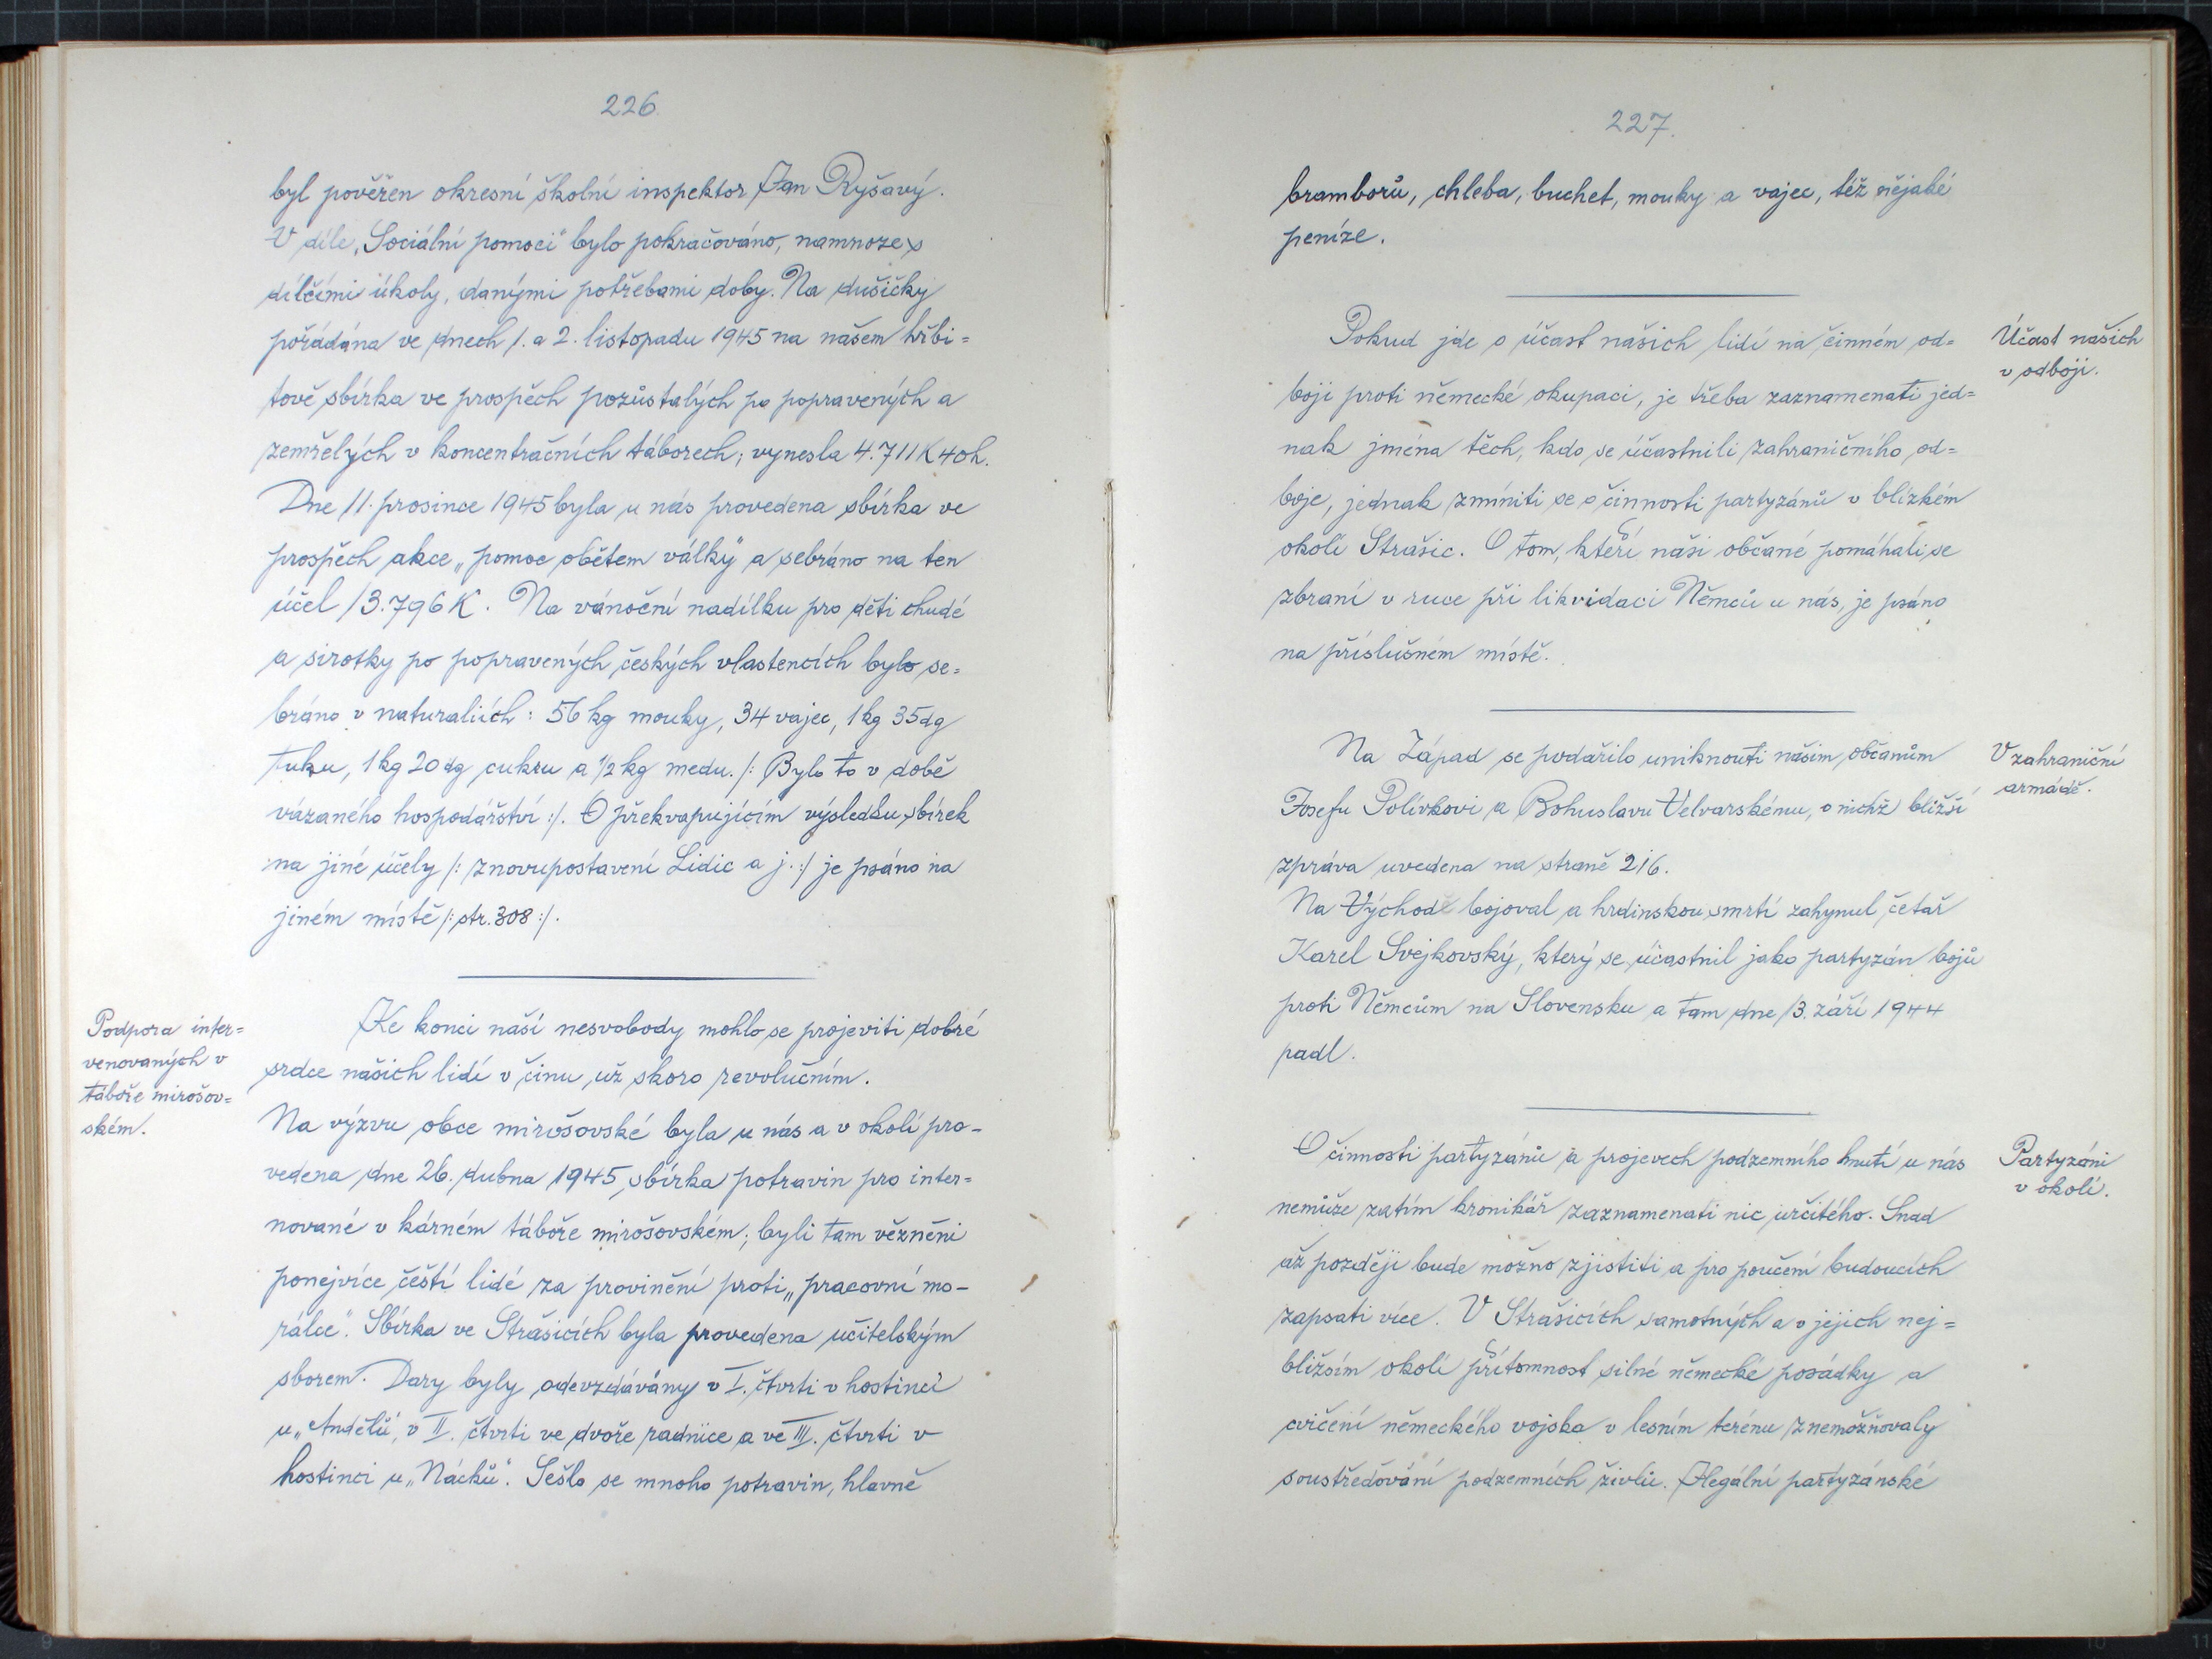 226.
byl pověřen okresní školní inspektor Jan Ryšavý.
V díle „Sociální pomoci" bylo pokračováno, namnoze s
dílčími úkoly, danými potřebami doby. Na dušičky
pořádána ve dnech 1. a 2. listopadu 1945 na našem hřbi=
tově sbírka ve prospěch pozůstalých po popravených a
zemřelých v koncentračních táborech; vynesla 4.711 K 40 h.
Dne 11. prosince 1945 byla u nás provedena sbírka ve
prospěch akce „pomoc obětem války" a sebráno na ten
účel 13.796 K. Na vánoční nadílku pro děti chudé
a sirotky po popravených českých vlastencích bylo se=
bráno v naturaliích: 56 kg mouky, 34 vajec, 1 kg 35 dg
tuku, 1 kg 20 dg cukru a 1/2 kg medu. /: Bylo to v době
vázaného hospodářství :/. O překvapujícím výsledku sbírek
na jiné účely /: znovupostavení Lidic a j. :/ je psáno na
jiném místě /: str. 308 :/.
Podpora inter=
venovaných v
táboře mirošov=
ském.
Ke konci naší nesvobody mohlo se projeviti dobré
srdce našich lidí v činu už skoro revolučním.
Na výzvu obce mirošovské byla u nás a v okolí pro-
vedena dne 26. dubna 1945 sbírka potravin pro inter=
nované v kárném táboře mirošovském; byli tam vězněni
ponejvíce čeští lidé za provinění proti „pracovní mo-
rálce". Sbírka ve Strašicích byla provedena učitelským
sborem. Dary byly odevzdávány v I. čtvrti v hostinci
u „Andělů", v II. čtvrti ve dvoře radnice a ve III. čtvrti v
hostinci u „Nácků". Sešlo se mnoho potravin, hlavně
227.
bramborů, chleba, buchet, mouky a vajec, též nějaké
peníze.
Účast našich
v odboji.
Pokud jde o účast našich lidí na činném od=
boji proti německé okupaci, je třeba zaznamenati jed=
nak jména těch, kdo se účastnili zahraničního od=
boje, jednak zmíniti se o činnosti partyzánů v blízkém
okolí Strašic. O tom, kteří naši občané pomáhali se
zbraní v ruce při likvidaci Němců u nás, je psáno
na příslušném místě.
V zahraniční
armádě.
Na Západ se podařilo uniknouti našim občanům
Josefu Polívkovi a Bohuslavu Velvarskému, o nichž bližší
zpráva uvedena na straně 216.
Na Východě bojoval a hrdinskou smrtí zahynul četař
Karel Svejkovský, který se účastnil jako partyzán bojů
proti Němcům na Slovensku a tam dne 13. září 1944
padl.
Partyzáni
v okolí.
O činnosti partyzánů a projevech podzemního hnutí u nás
nemůže zatím kronikář zaznamenati nic určitého. Snad
až později bude možno zjistiti a pro poučení budoucích
zapsati více. V Strašicích samotných a v jejich nej=
bližším okolí přítomnost silné německé posádky a
cvičení německého vojska v lesním terénu znemožňovaly
soustřeďování podzemních živlů. Ilegální partyzánské